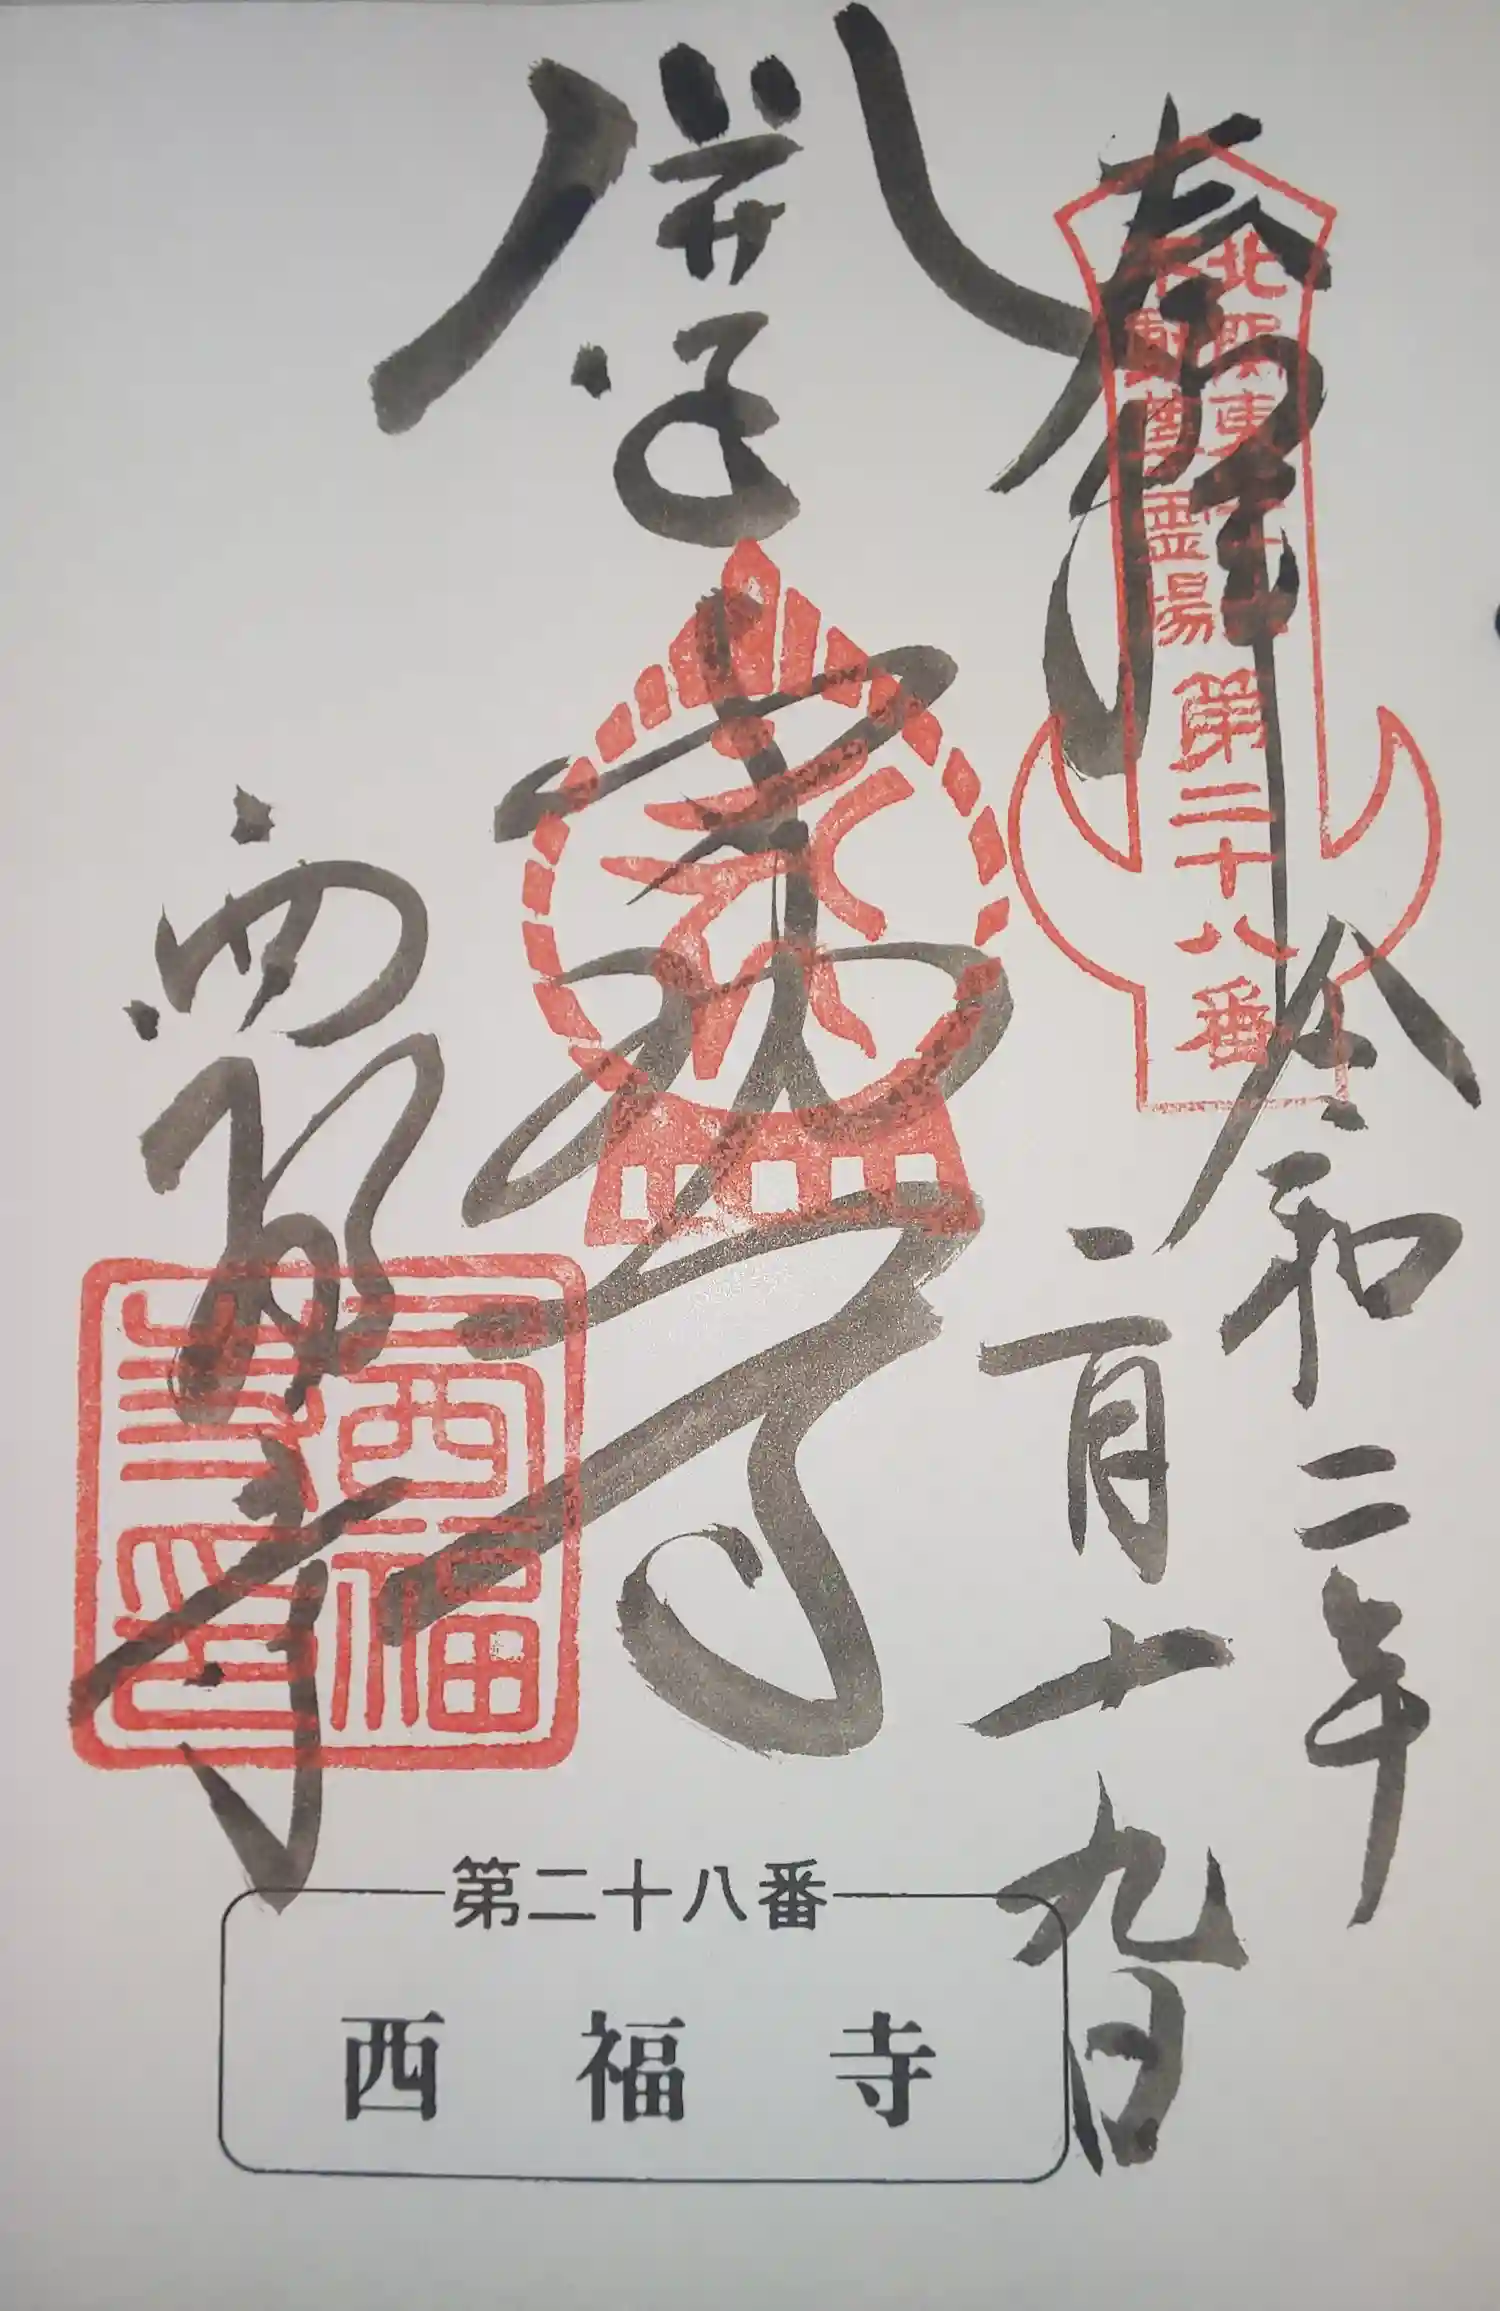 奉拝
北関東三十六
不動尊霊場
第二十八番
令和二年
二月十九日
西福寺
西福
寺印
第二十八番
西福寺